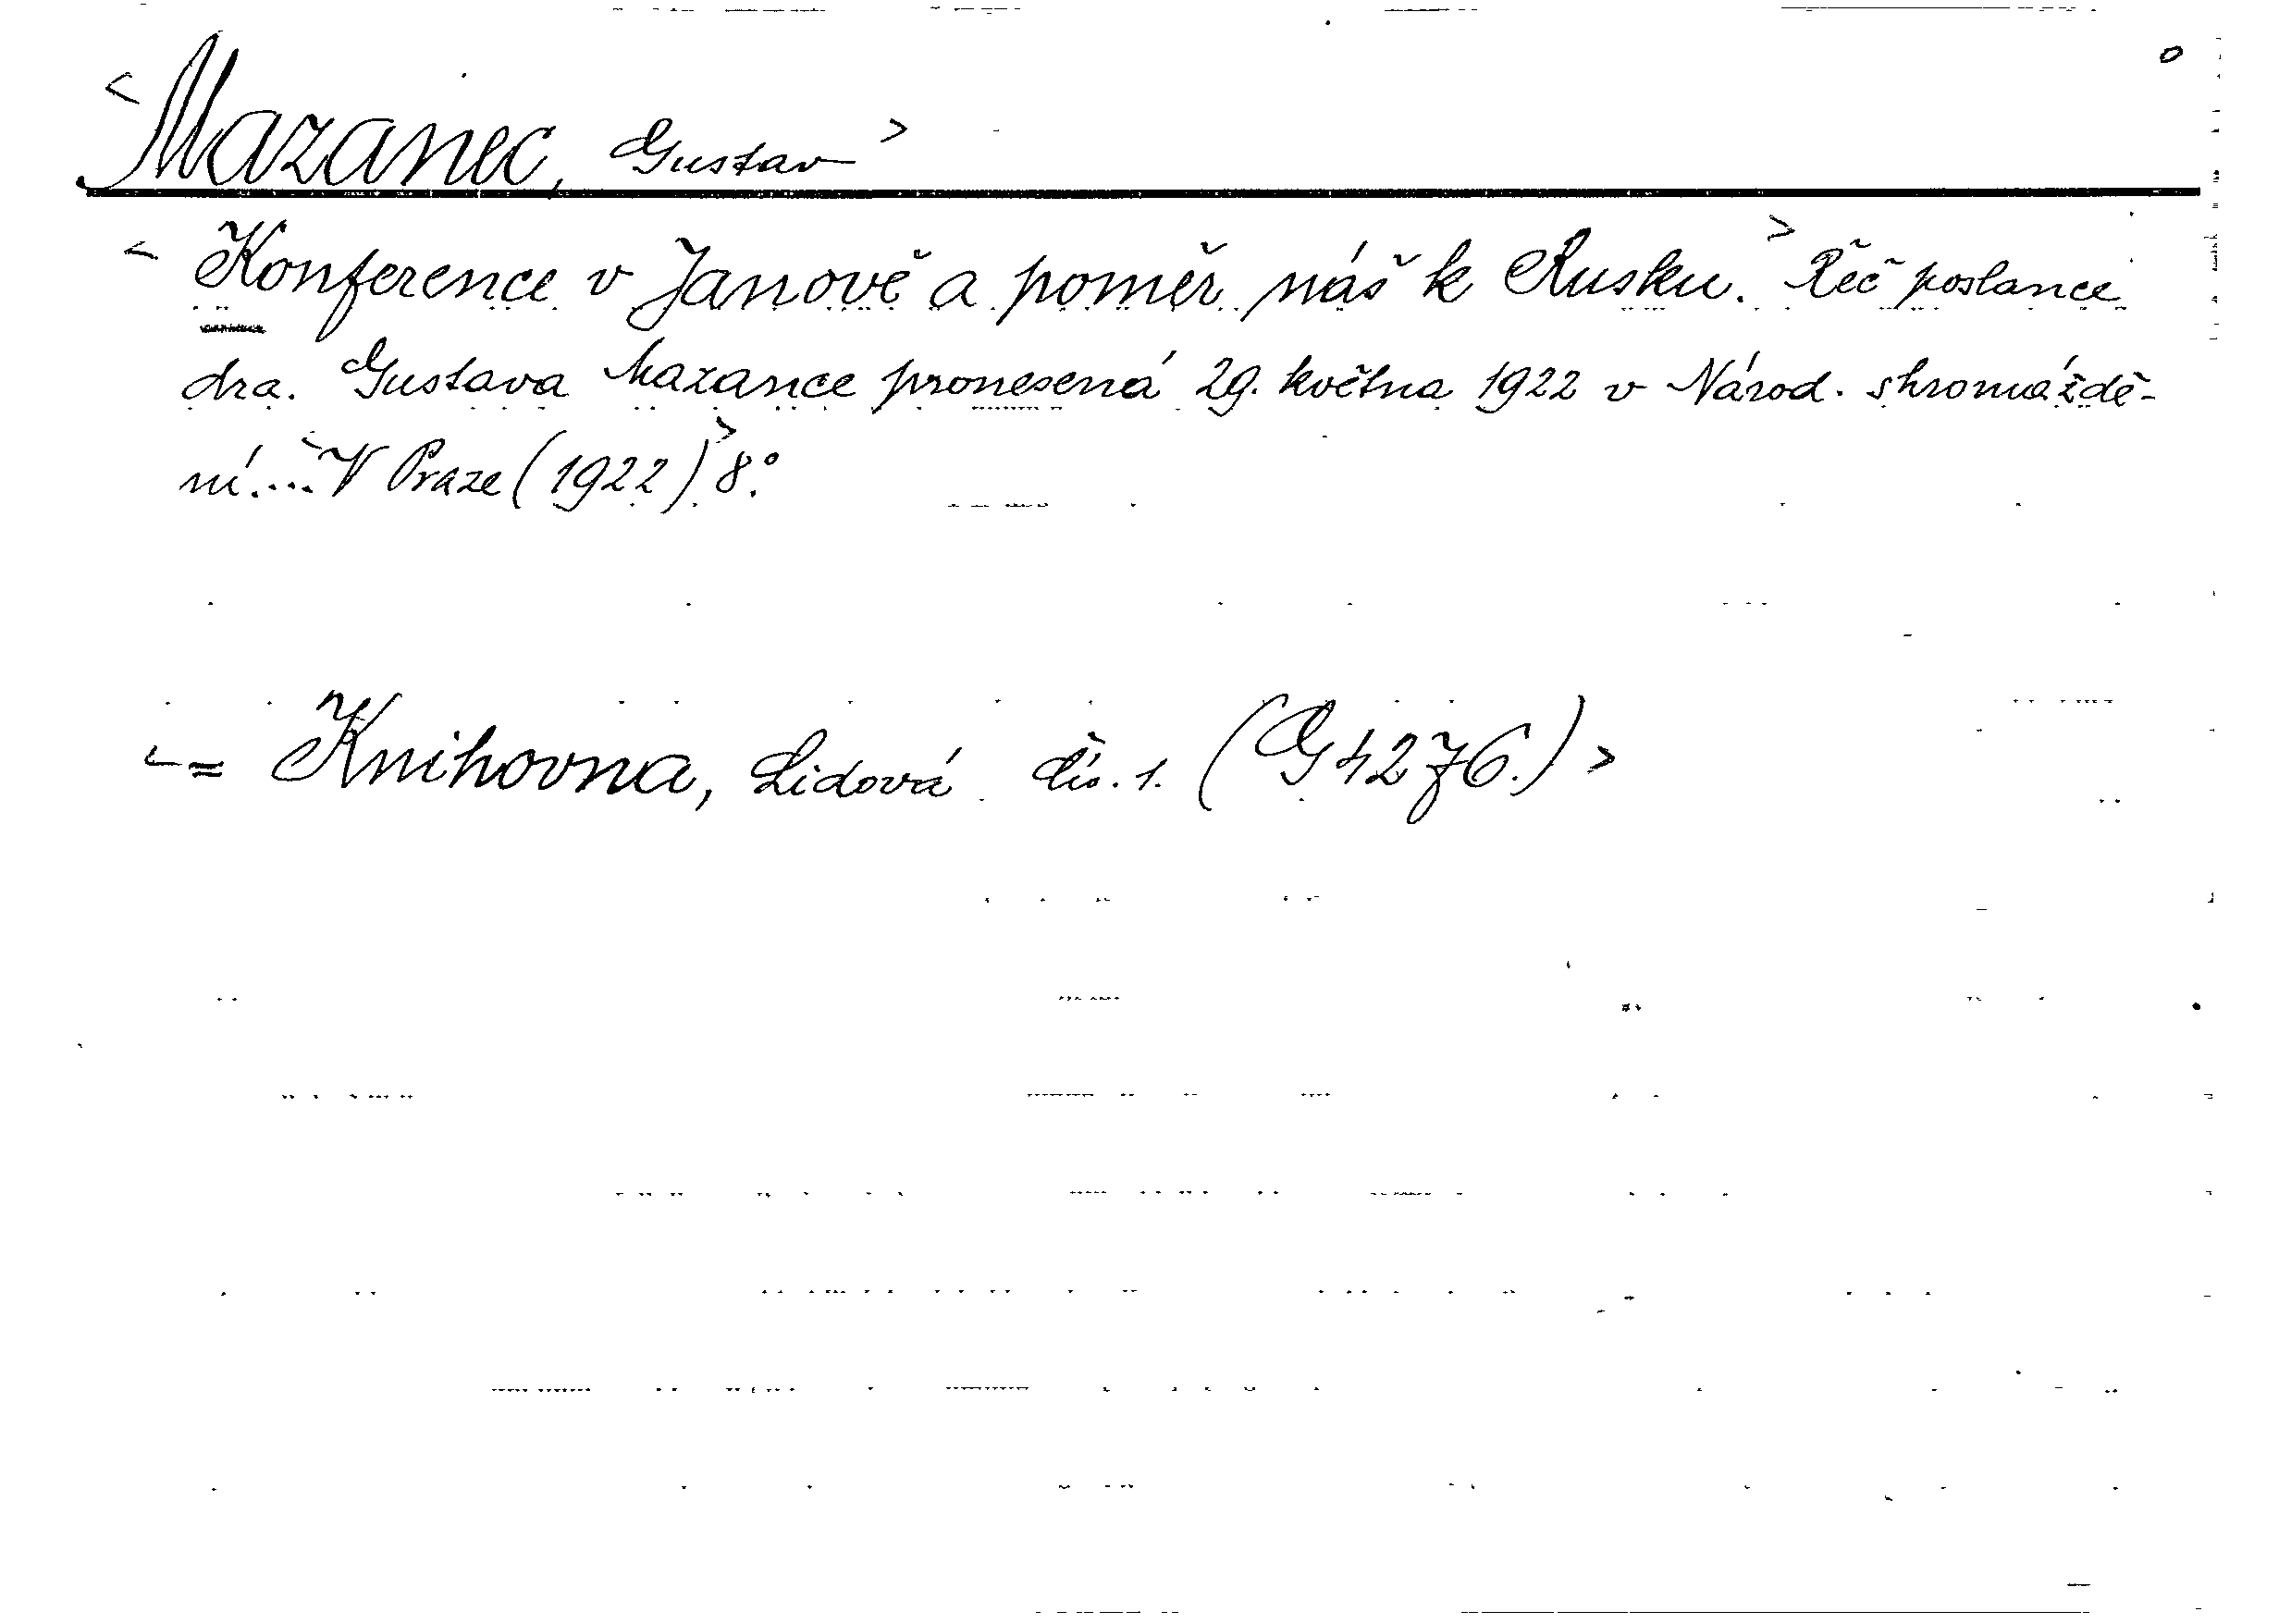 <Mazanec, Gustav>
<Konference v Janově a poměr náš k Rusku.> Řeč poslance
dra. Gustava Mazance pronesená 29. května 1922 v Národ. shromáždě-
ní... <V Praze (1922)> 8°.
<= Knihovna, Lidová čís. 1. (G 4276.)>